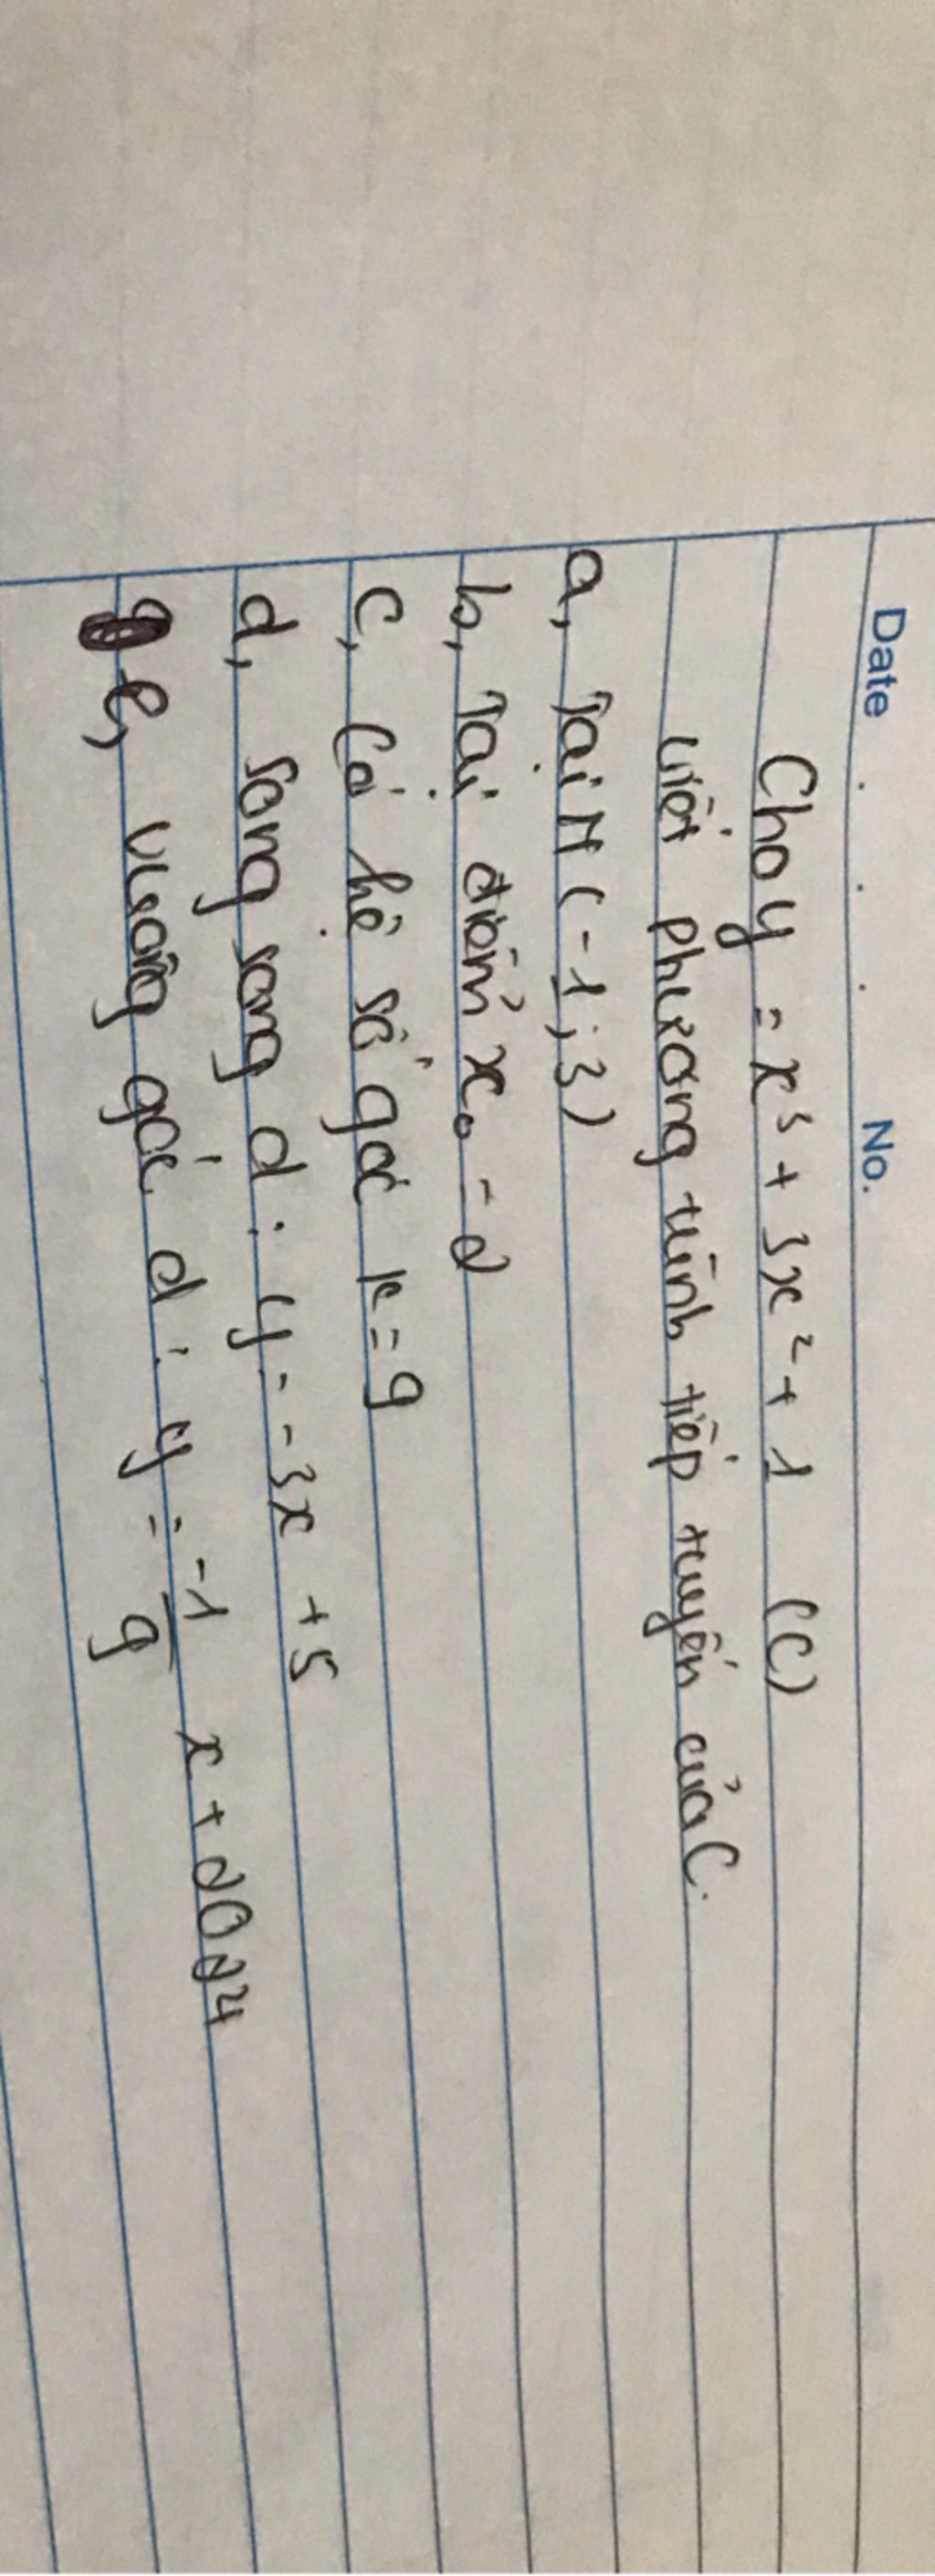 Date . . . No.
Cho y = x³ + 3x² + 1 (C)
viết phương trình tiếp tuyến của C.
a, Tại M (-1; 3)
b, Tại điểm x₀ = 2
c, Có hệ số góc k = 9
d, song song d : y = -3x + 5
e, vuông góc d : y = -1/9 x + 2024